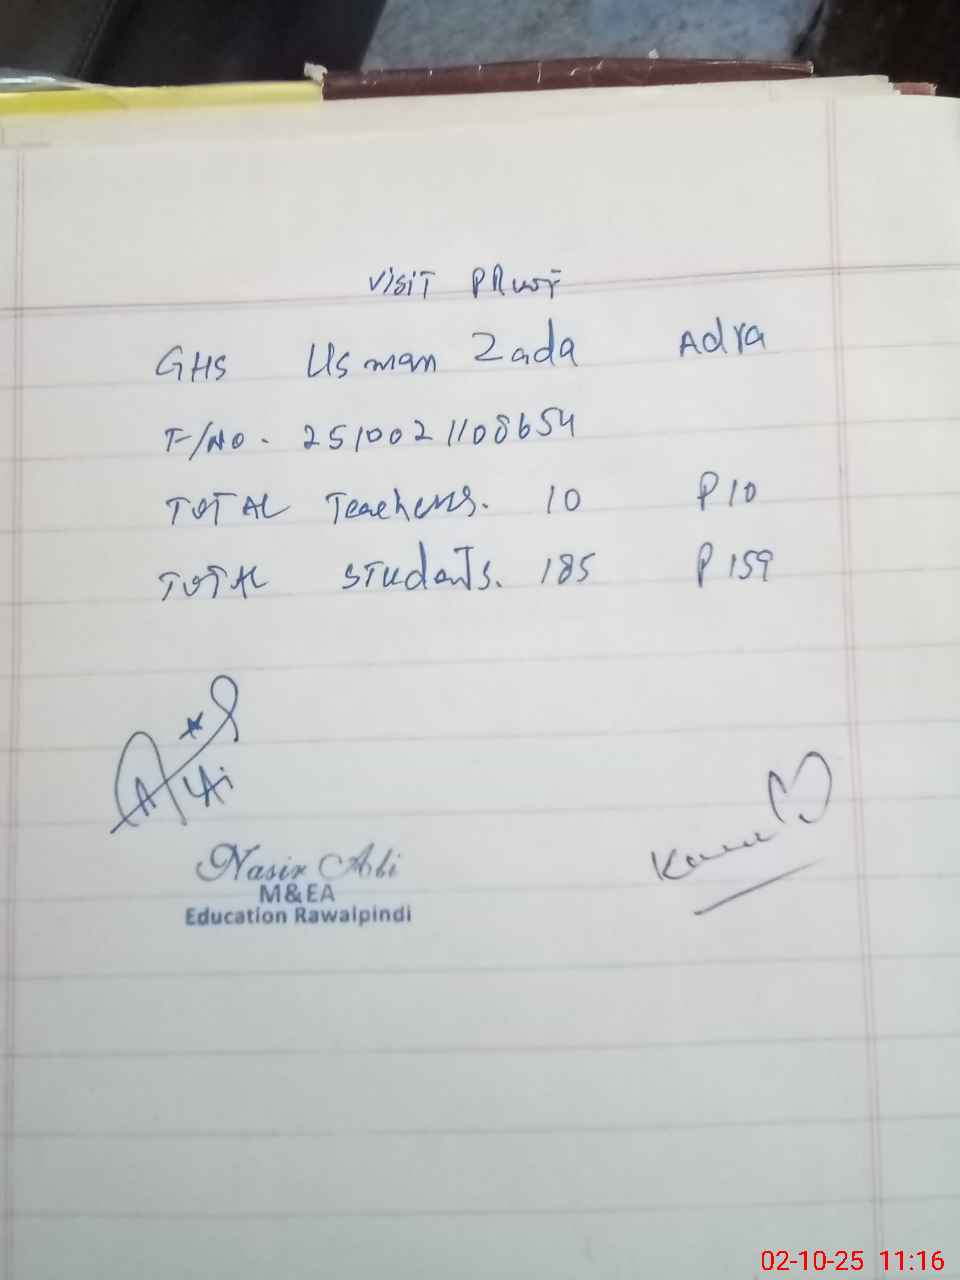 Visit PRwt
GHS Usman Zada Adra
F/No. 251002 1108654
TOTAL Teachers. 10 P10
TOTAL Students. 185 P159
Nasir Ali
M&EA
Education Rawalpindi
02-10-25 11:16